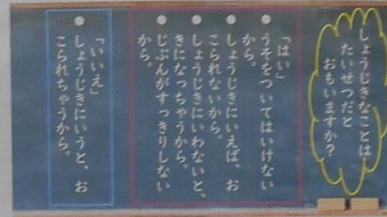 しょうじきなことは
たいせつだと
おもいますか？
「はい」
うそをついてはいけない
から。
しょうじきにいえば、お
こられないから。
しょうじきにいわないと、
きになっちゃうから。
じぶんがすっきりしない
から。
「いいえ」
しょうじきにいうと、お
こられちゃうから。